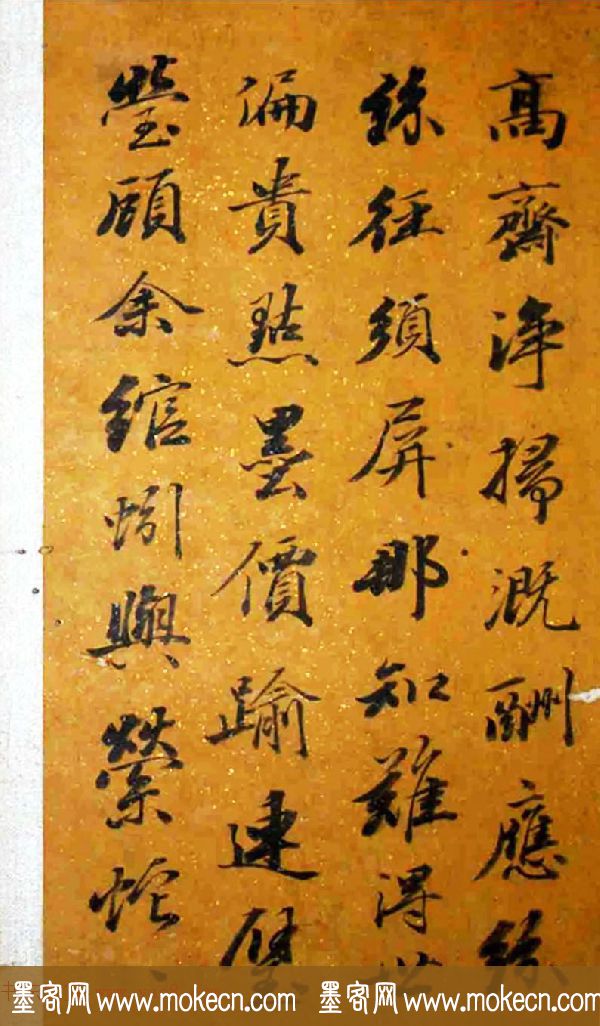 高齋淨掃溉酬應絲
絲徑須屏那知難得
偏貴點墨價踰連璧
瑩頋余綰蚓與縈蛇
墨客网 www.mokecn.com 墨客网 www.mokecn.com